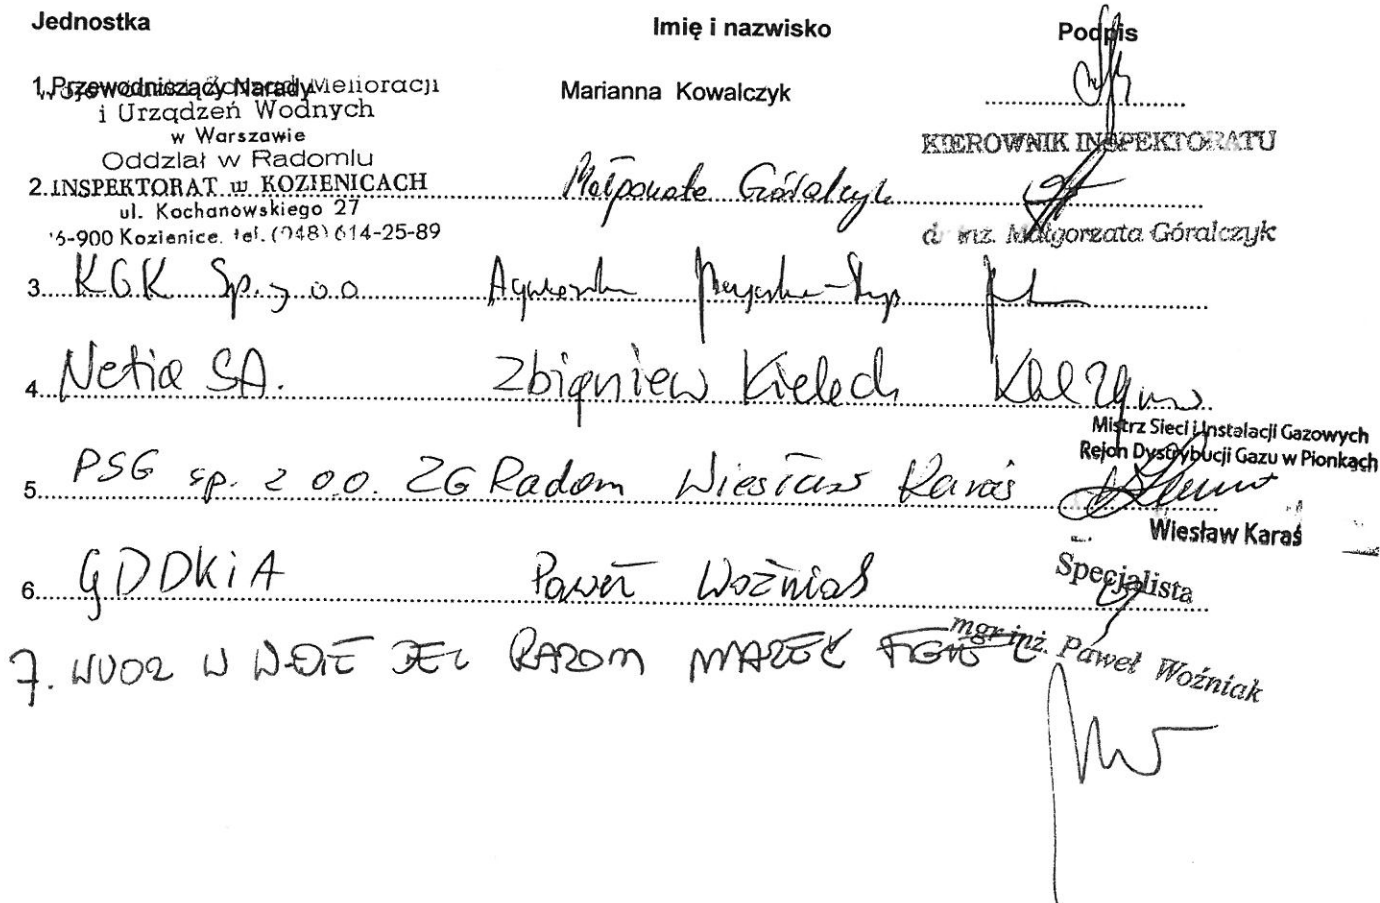 Jednostka Imię i nazwisko Podpis
1. Przewodniczący Narady Marianna Kowalczyk
Melioracji
i Urządzeń Wodnych
w Warszawie
Oddział w Radomiu
KIEROWNIK INSPEKTORATU
2. INSPEKTORAT w KOZIENICACH Małgorzata Góralczyk
ul. Kochanowskiego 27
6-900 Kozienice, tel. (048) 614-25-89
dr inż. Małgorzata Góralczyk
3. KGK Sp. z o.o Agnieszka
4. Netia SA. Zbigniew Kielech
Mistrz Sieci i Instalacji Gazowych
Rejon Dystrybucji Gazu w Pionkach
5. PSG sp. z o.o. ZG Radom Wiesław Karaś
Wiesław Karaś
6. GDDKiA Paweł Woźniak
Specjalista
mgr inż. Paweł Woźniak
7. RADOM MAREK